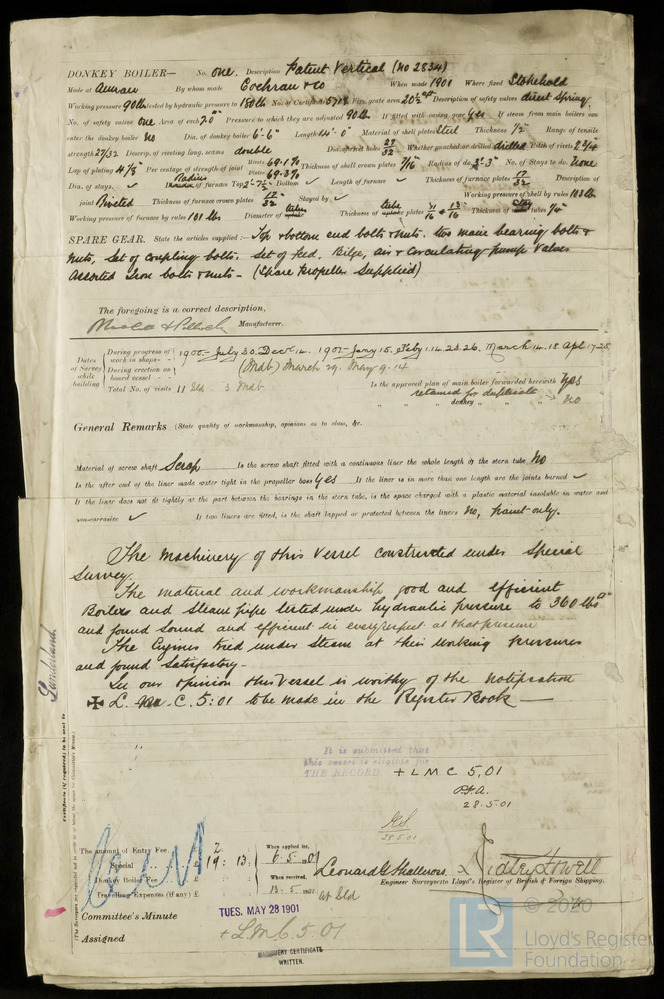 DONKEY BOILER— No. one. Description Patent Vertical (No 2834)
Made at Annan By whom made Cochran & Co When made 1901 Where fixed Stokehold
Working pressure 90 lb tested by hydraulic pressure to 180 lb No. of Certificate 5718 Fire grate area 20½ Description of safety valves direct spring
No. of safety valves one Area of each 7.0" Pressure to which they are adjusted 90 lb. If fitted with easing gear Yes If steam from main boilers can
enter the donkey boiler No Dia. of donkey boiler 6'-6" Length 14'-0" Material of shell plates Steel Thickness ½" Range of tensile
strength 27/32 Descrip. of riveting long. seams double Dia. of rivet holes 27/32 Whether punched or drilled drilled Pitch of rivets 2¾
Lap of plating 4⅛ Per centage of strength of joint Rivets 69.1% Plates 69.3% Thickness of shell crown plates 7/16 Radius of do. 3'-3" No. of Stays to do. None
Dia. of stays. ✓ Radius of furnace Top 2'-7½" Bottom ✓ Length of furnace ✓ Thickness of furnace plates 17/32 Description of
joint Riveted Thickness of furnace crown plates 17/32 Stayed by ✓ Working pressure of shell by rules 103 lb
Working pressure of furnace by rules 101 lbs Diameter of uptake Thickness of tube plates & 13/16 Thickness of tubes ¼"
SPARE GEAR. State the articles supplied:— Top & bottom end bolts & nuts. two main bearing bolts &
nuts, Set of coupling bolts. Set of Feed, Bilge, air & Circulating pump Valves
Assorted Iron bolts & nuts - (Spare Propeller Supplied)
The foregoing is a correct description,
Manufacturer.
Dates of Survey while building
During progress of work in shops- 1900- July 30. Decr 14. 1901- Jany 15. Feby 1.14.23.26. March 14.18. Apl 17.25
During erection on board vessel - (Mdb) March 29. May 9.14
Total No. of visits 11 Sld 3 Mdb. Is the approved plan of main boiler forwarded herewith Yes
retained for duplicate
" " " donkey " " " No
General Remarks (State quality of workmanship, opinions as to class, &c.
Material of screw shaft Scrap Is the screw shaft fitted with a continuous liner the whole length of the stern tube No
Is the after end of the liner made water tight in the propeller boss Yes If the liner is in more than one length are the joints burned ✓
If the liner does not fit tightly at the part between the bearings in the stern tube, is the space charged with a plastic material insoluble in water and
non-corrosive ✓ If two liners are fitted, is the shaft lapped or protected between the liners No, paint only.
The Machinery of this Vessel constructed under Special
Survey.
The material and workmanship good and efficient
Boilers and Steam pipe tested under hydraulic pressure to 360 lbs
and found sound and efficient in every respect at that pressure
The Engines tried under Steam at their working pressures
and found Satisfactory -
In our opinion this Vessel is worthy of the notification
✠ L. M. C. 5:01 to be made in the Register Book —
Sunderland
Certificate (if required) to be sent to
It is submitted that
this vessel is eligible for
THE RECORD + L M C 5,01
28.5.01
28 5 01
The amount of Entry Fee £ 2
Special £ 19 : 13 :
Donkey Boiler Fee £
Travelling Expenses (if any) £
When applied for, 6.5.01
When received, 13.5.1901
Leonard G Shallcross. Ridley Howell
at Sld
Engineer Surveyor to Lloyd's Register of British & Foreign Shipping.
Committee's Minute TUES. MAY 28 1901
Assigned + L M C 5.01
MACHINERY CERTIFICATE
WRITTEN.
LR
© 2020
Lloyd's Register
Foundation